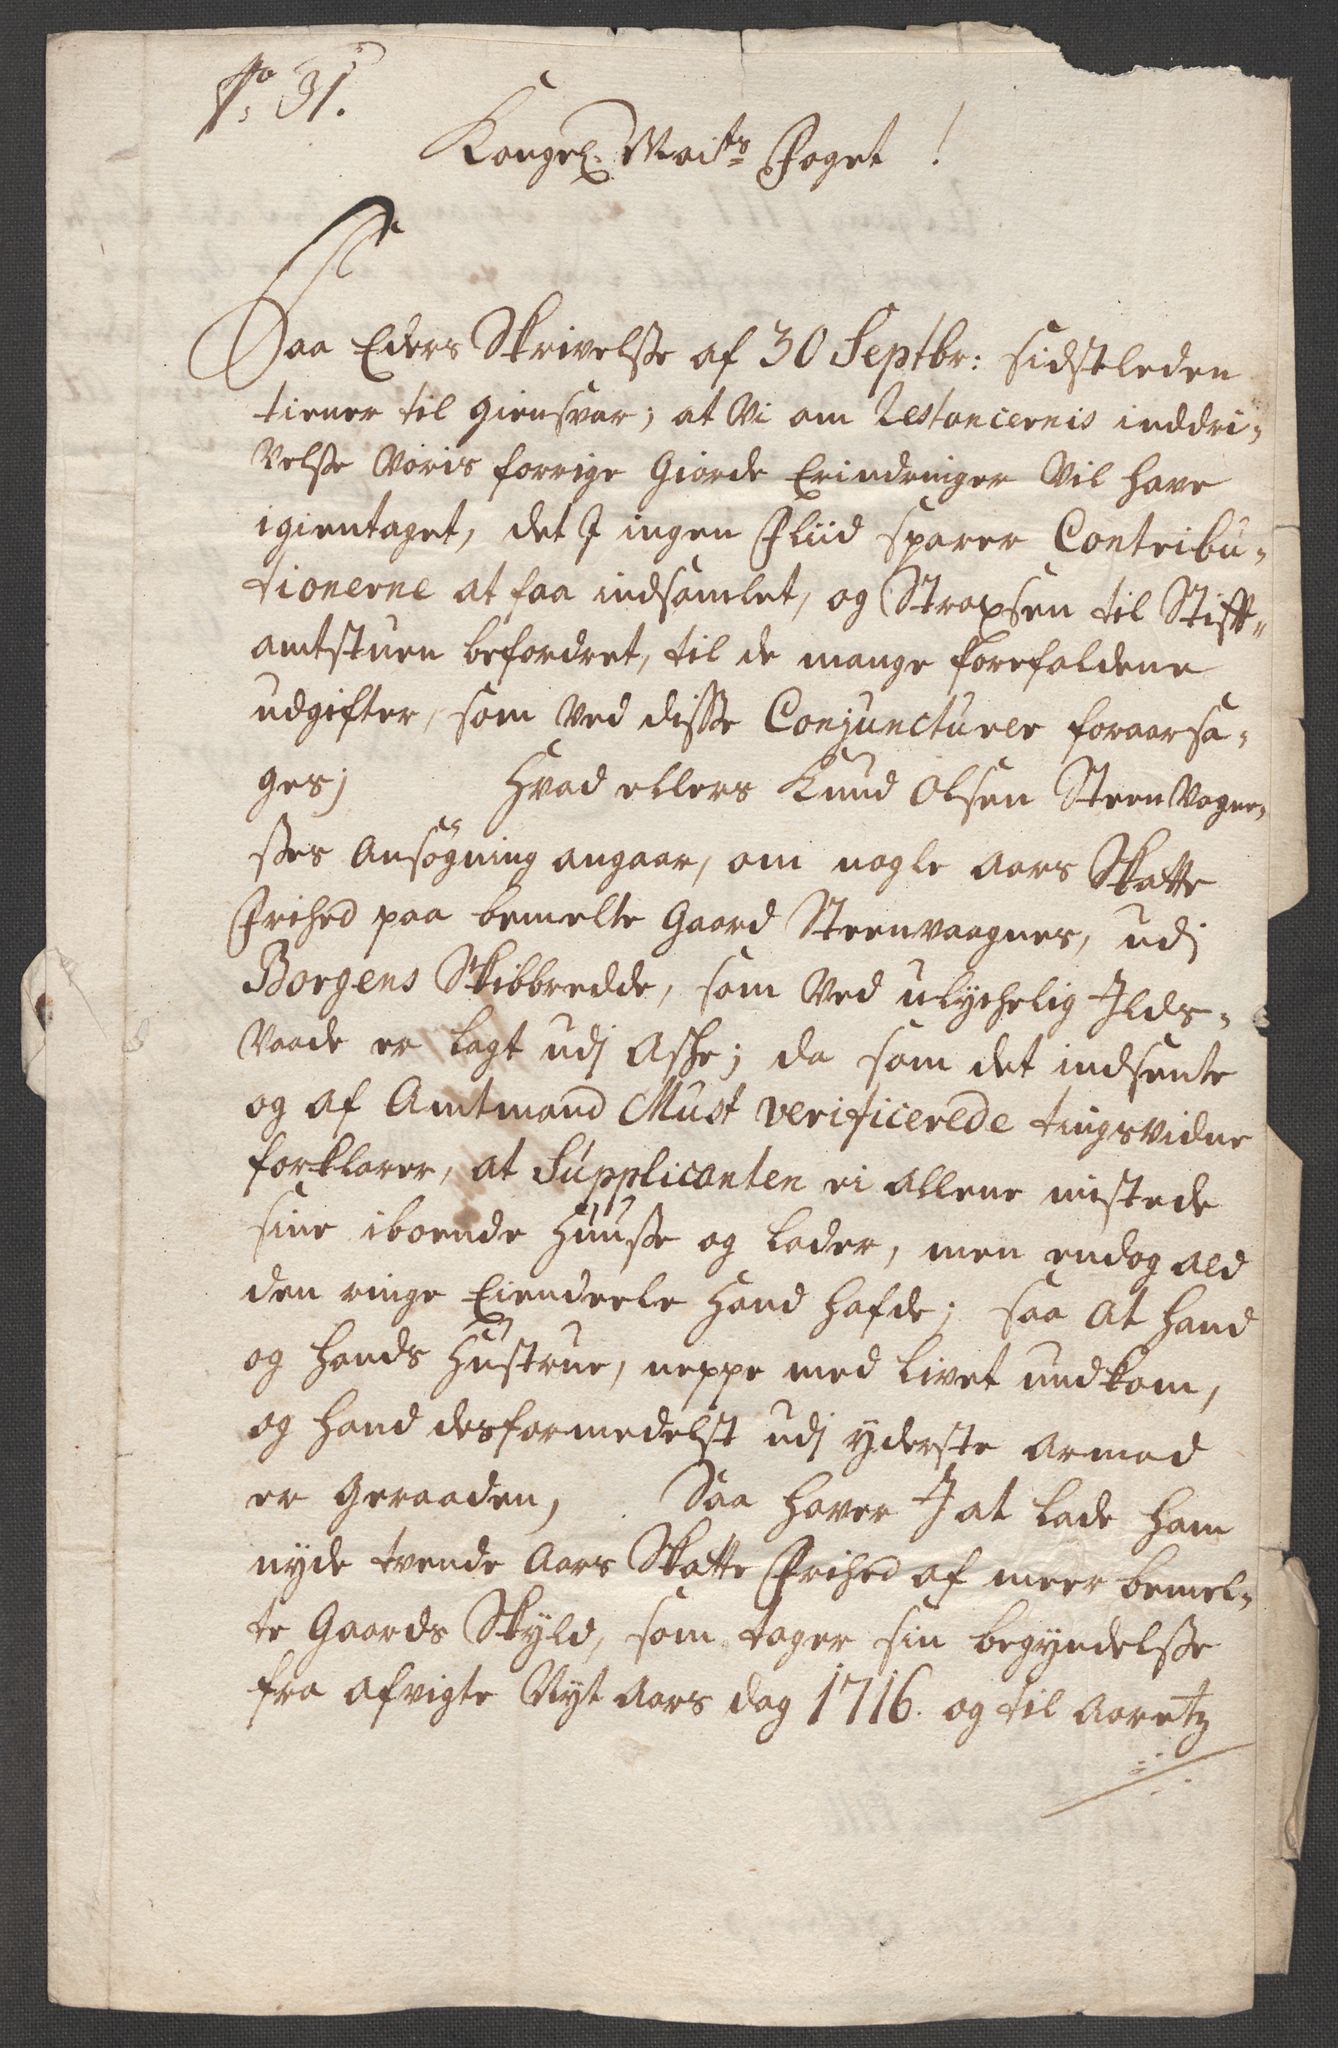 No. 31.
Kongel. Maits Foget!
Paa Eders Skrivelsse af 30 Septbr: sidstleden
tiener til giensvar; at Vi om Restancernis inddri-
velsse Voris forrige giorde Erindringer Vil have
igientaget, det I ingen Fliid sparer Contribu-
tionerne at faa indsamlet, og Straxsen til Stift-
amtstuen befordret, til de mange forefaldene
udgifter, som Ved disse Conjuncturer foraarsa-
ges; Hvad ellers Knud Olsen SteenVogne-
sses Ansøgning angaar, om nogle Aars Skatte
Frihed paa bemelte Gaard Steenvaagnes, udj
Borgens Skibbredde, som Ved ulychelig Ilds-
vaade er lagt udj Aske; da som det indsente
og af Amtmand Must verificerede tingsvidne
forklarer, at Supplicanten ei allene mistede
sine iboende Huusse og lader, men endog ald
den ringe Eiendeele Hand hafde; saa at hand
og hands Hustrue, neppe med livet undkom,
og hand desformedelst udj yderste armod
er geraaden, Saa haver I at lade ham
nyde tvende Aars Skatte Frihed af meer bemel-
te Gaards Skyld, som tager sin begyndelsse
fra afvigte Nyt Aars dag 1716. og til Aaretz